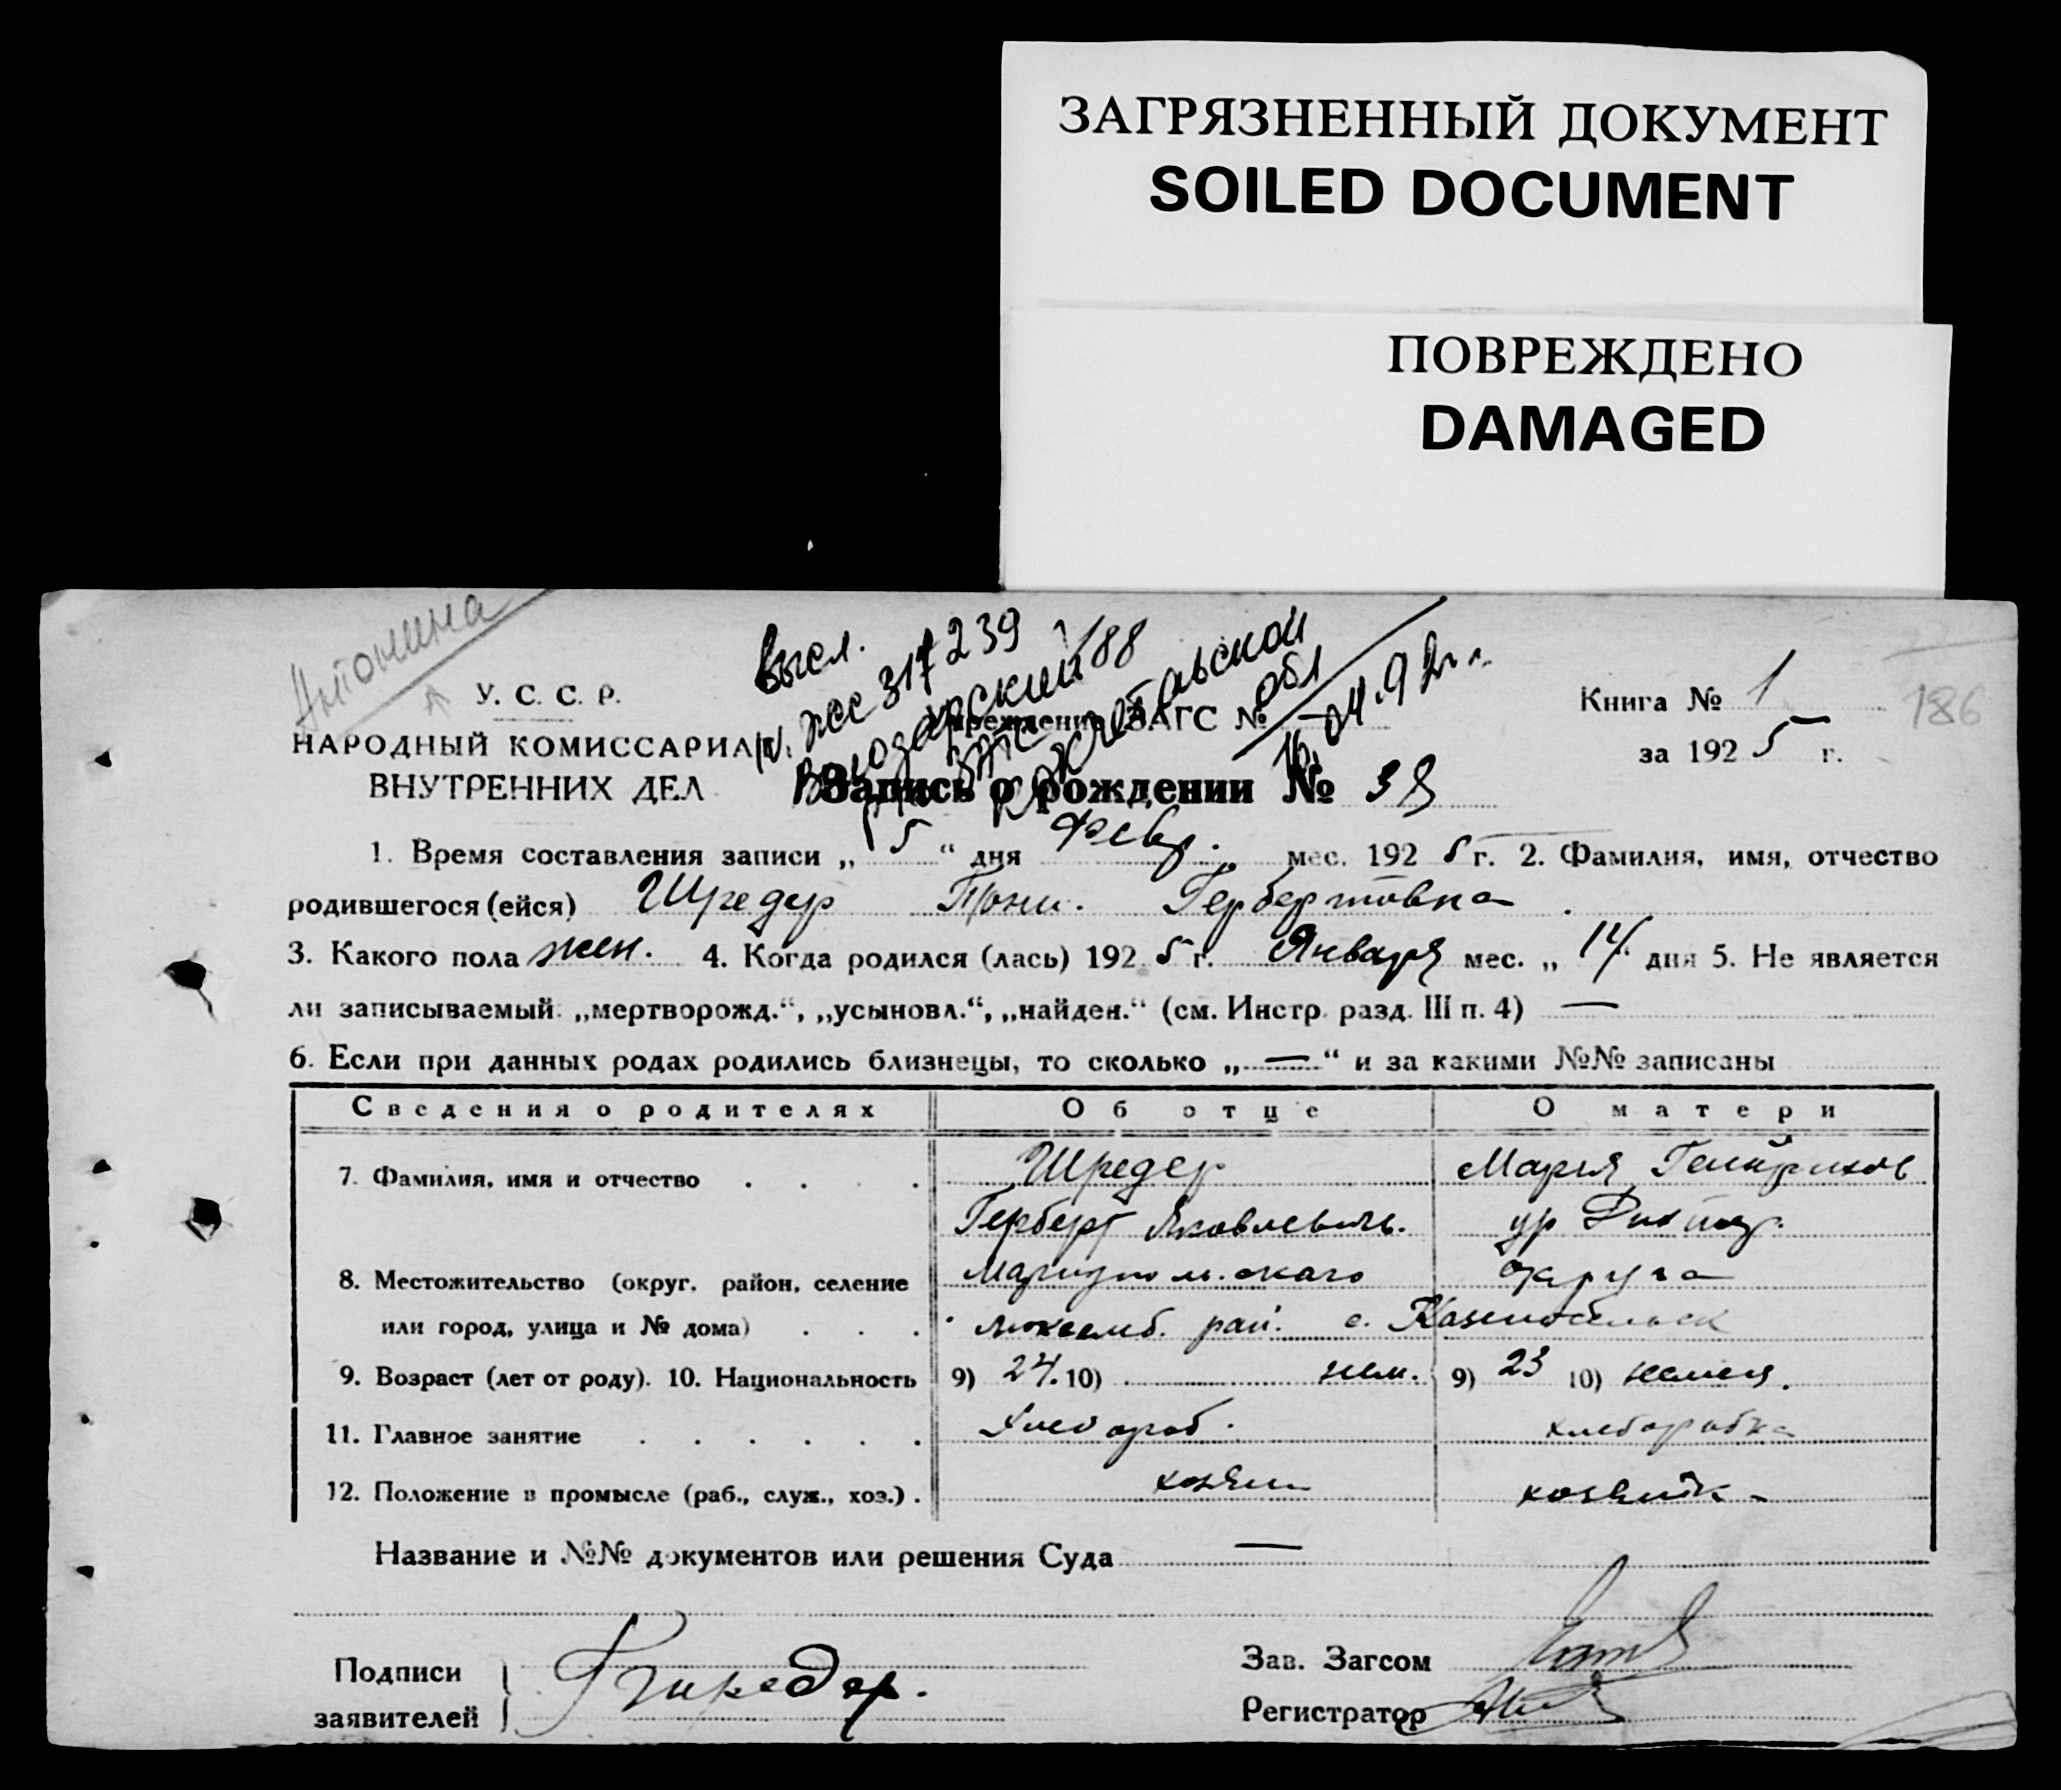 ЗАГРЯЗНЕННЫЙ ДОКУМЕНТ
SOILED DOCUMENT
ПОВРЕЖДЕНО
DAMAGED
Антонина
Высл.
317239
188
обл
16.04.92 г.
У. С. С. Р.
НАРОДНЫЙ КОМИССАРИАТ
ВНУТРЕННИХ ДЕЛ
Учреждение ЗАГС № —
Книга № 1
186
за 1925 г.
Запись о рождении № 38
1. Время составления записи „5“ дня Февр. мес. 1925 г. 2. Фамилия, имя, отчество
родившегося (ейся) Шредер Тони. Гербертовна
3. Какого пола жен. 4. Когда родился (лась) 1925 г. Января мес. „14“ дня 5. Не является
ли записываемый: „мертворожд.“, „усыновл.“, „найден.“ (см. Инстр. разд. III п. 4) —
6. Если при данных родах родились близнецы, то сколько „—“ и за какими №№ записаны
Сведения о родителях Об отце О матери
7. Фамилия, имя и отчество Шредер Мария Генрихов
Герберт Яковлевич. ур Рихтер.
8. Местожительство (округ, район, селение Мариупольскаго округа
или город, улица и № дома) люксемб. рай. с.
9. Возраст (лет от роду). 10. Национальность 9) 24. 10) нем. 9) 23 10) немец.
11. Главное занятие Хлебороб. хлеборобка
12. Положение в промысле (раб., служ., хоз.) хозяин хозяйка
Название и №№ документов или решения Суда —
Подписи
заявителей Г Шредер.
Зав. Загсом
Регистратор